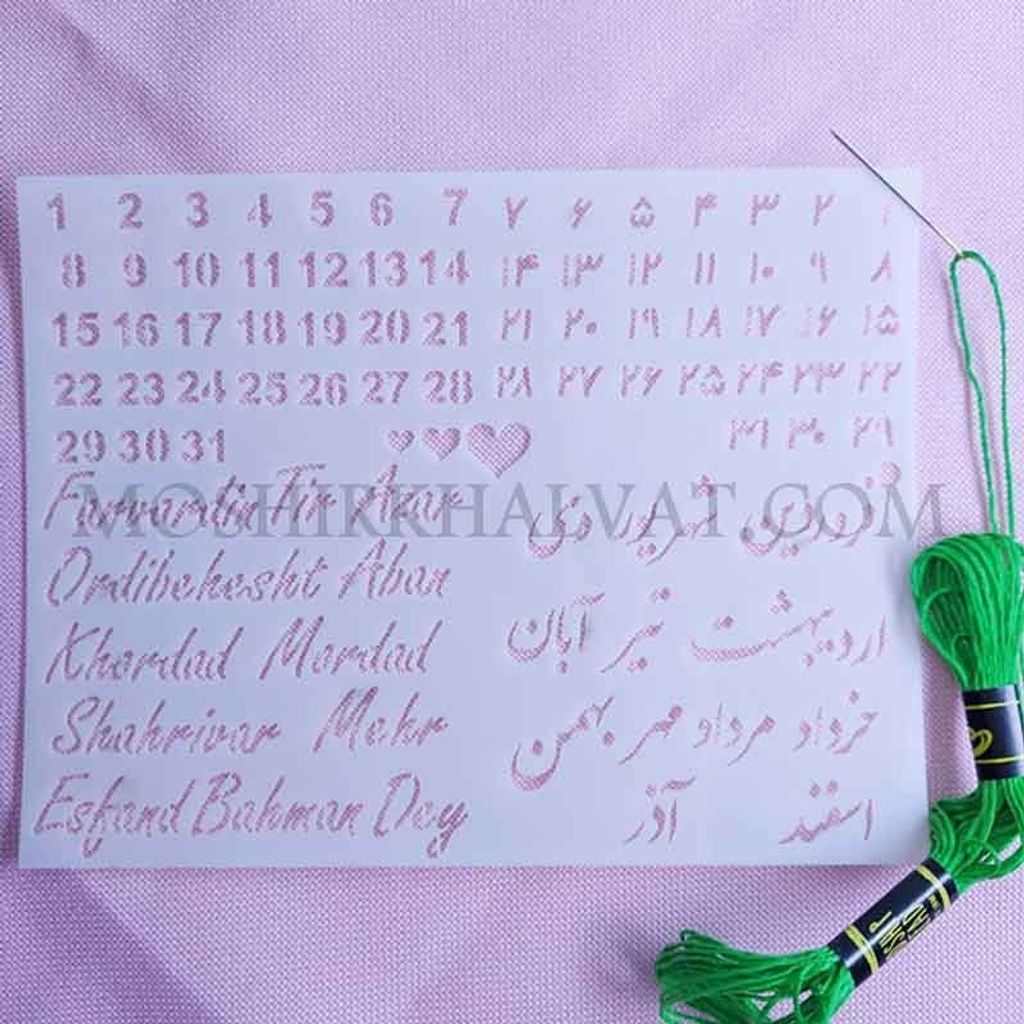 1 2 3 4 5 6 7
8 9 10 11 12 13 14
15 16 17 18 19 20 21
22 23 24 25 26 27 28
29 30 31
۱ ۲ ۳ ۴ ۵ ۶ ۷
۸ ۹ ۱۰ ۱۱ ۱۲ ۱۳ ۱۴
۱۵ ۱۶ ۱۷ ۱۸ ۱۹ ۲۰ ۲۱
۲۲ ۲۳ ۲۴ ۲۵ ۲۶ ۲۷ ۲۸
۲۹ ۳۰ ۳۱
MOSHIRKHALVAT.COM
Farvardin Tir Azar
Ordibehesht Aban
Khordad Mordad
Shahrivar Mehr
Esfand Bahman Dey
فروردین شهریور دی
اردیبهشت تیر آبان
خرداد مرداد مهر بهمن
اسفند آذر